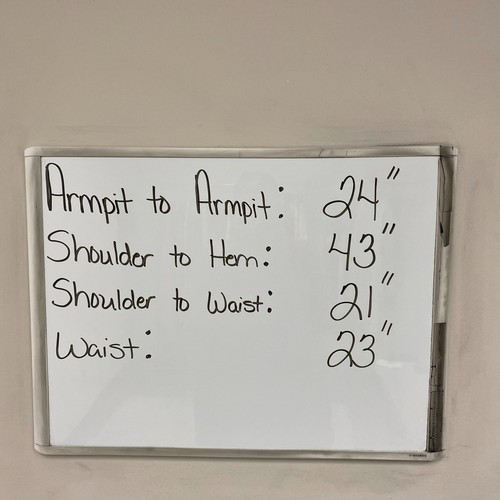 Armpit to Armpit: 24"
Shoulder to Hem: 43"
Shoulder to Waist: 21"
Waist: 23"